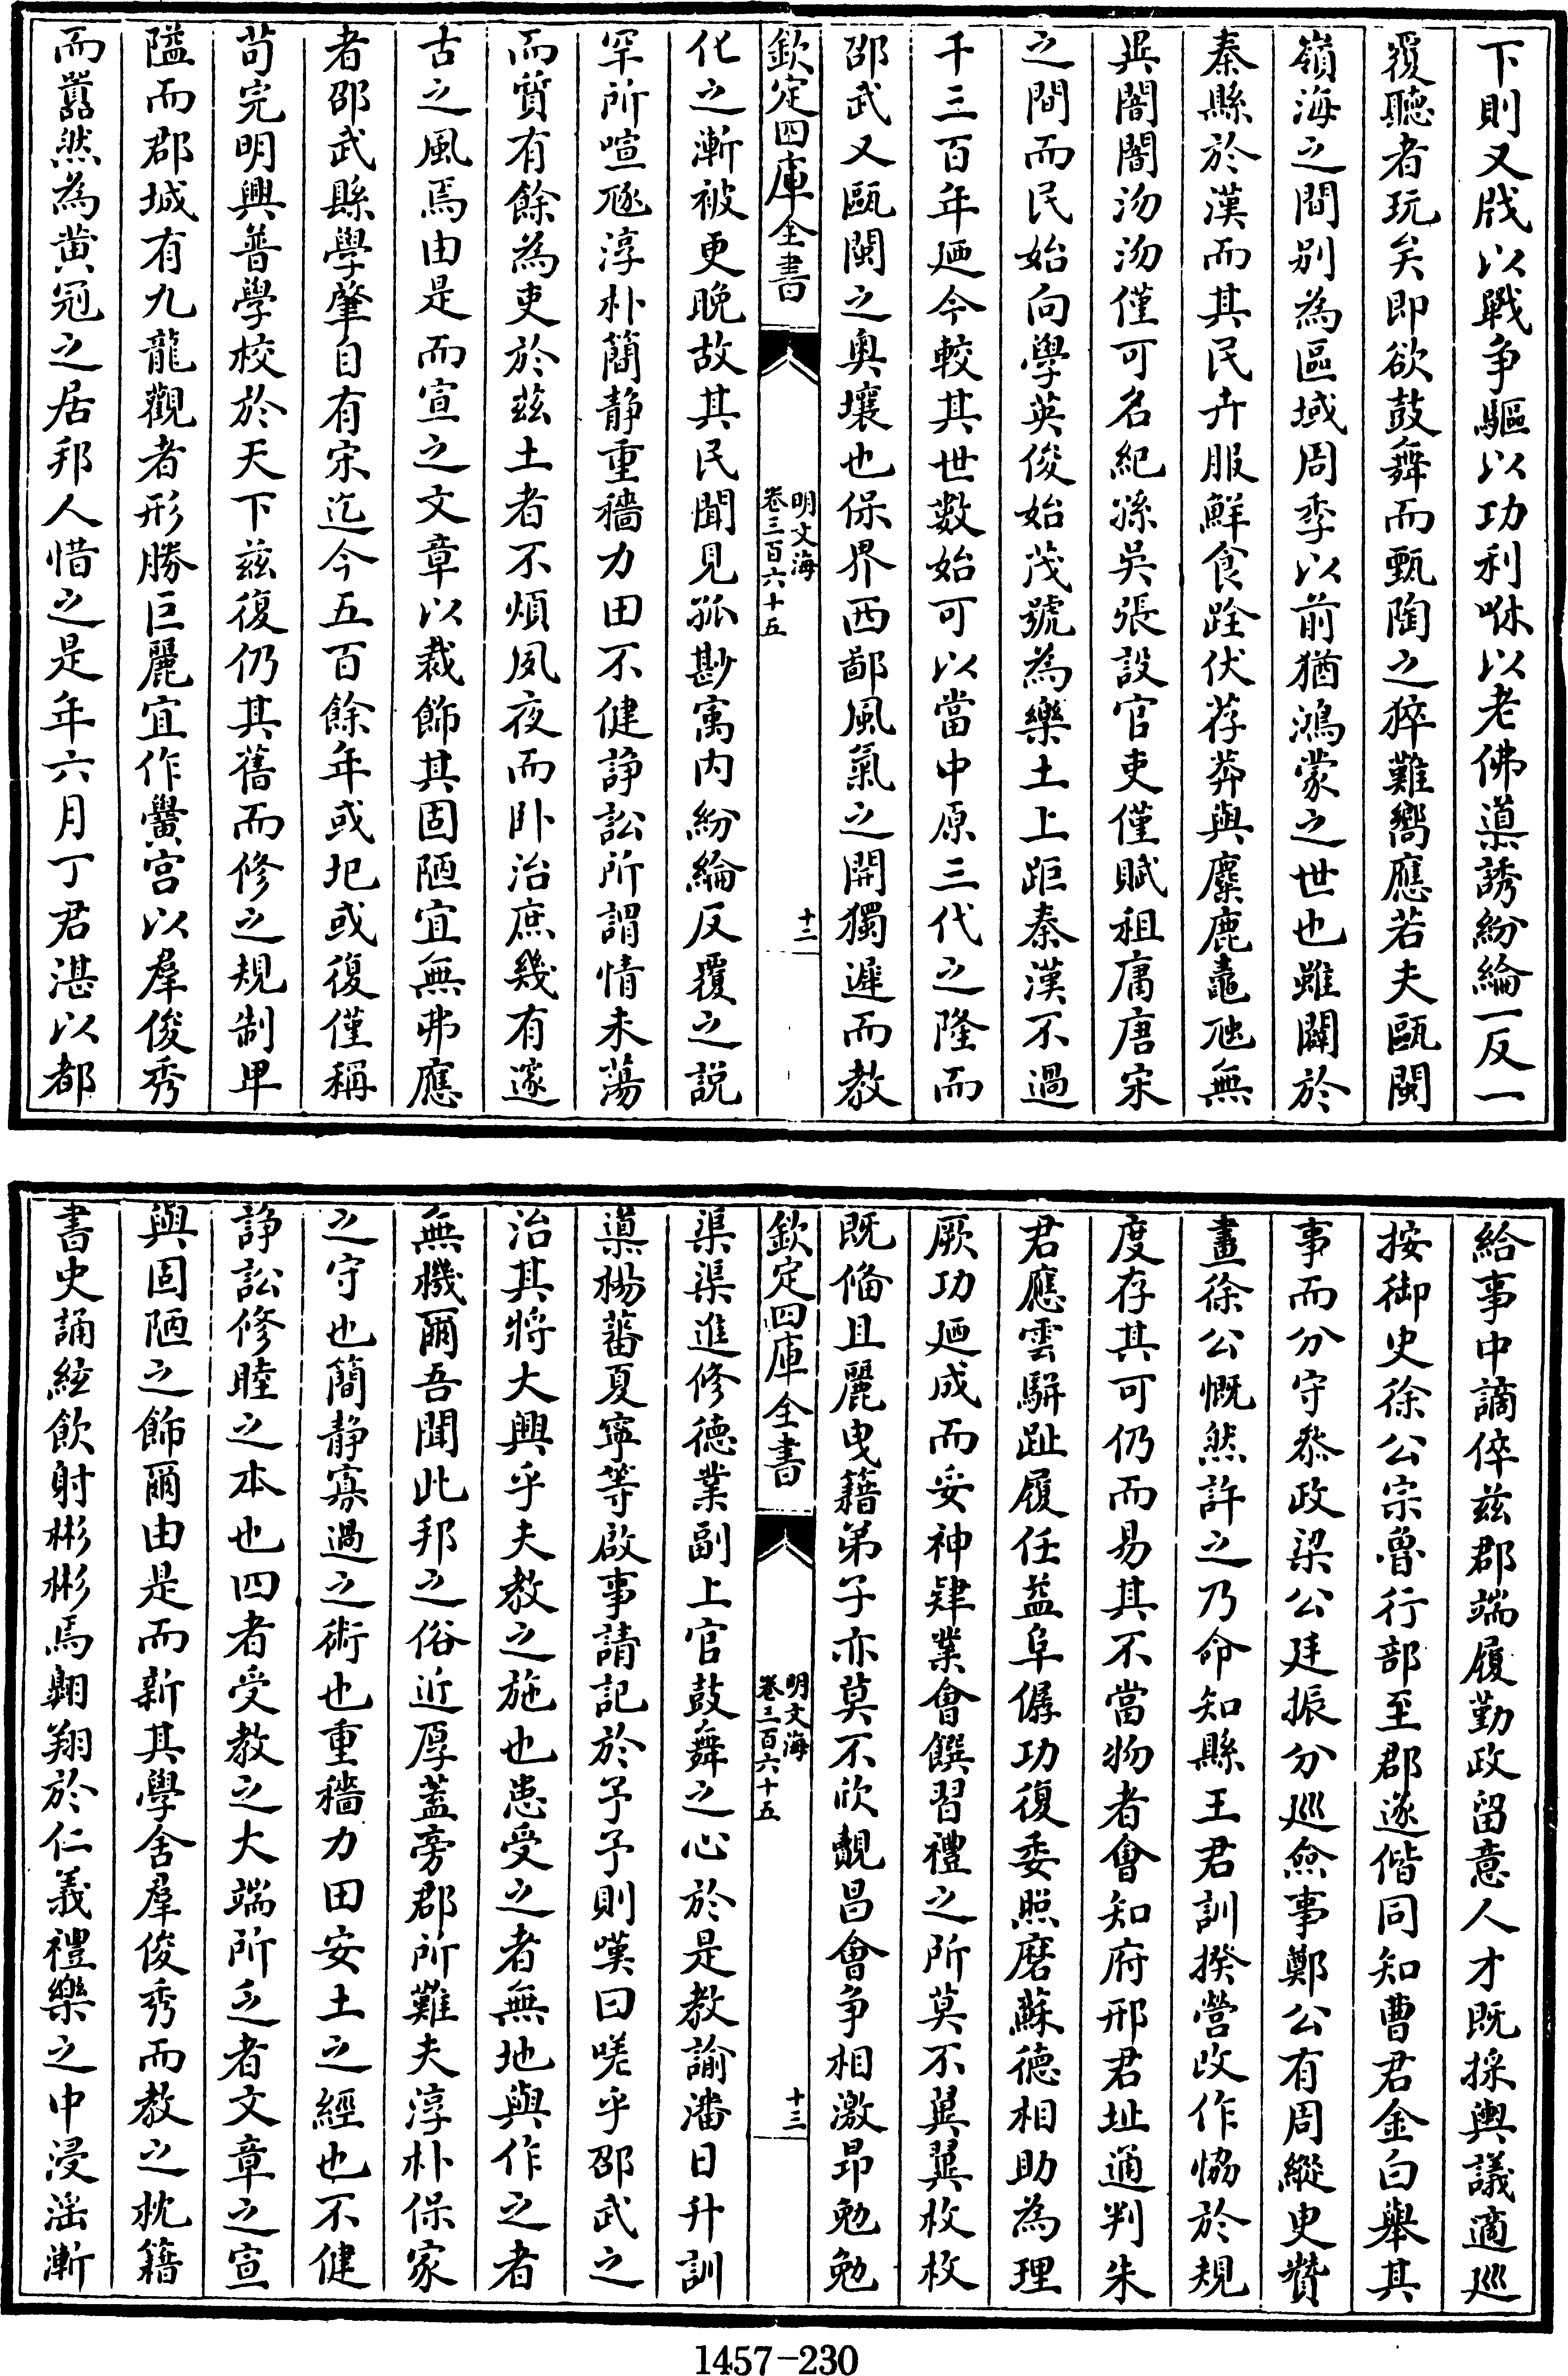 下則又戕以戰争驅以功利咻以老佛䆃誘紛綸一反一
覆聽者玩矣即欲鼓舞而甄陶之猝難嚮應若夫甌閩
嶺海之間别為區域周季以前猶鴻蒙之世也雖闢於
秦縣於漢而其民卉服鮮食跧伏荐莽與麋鹿鼃虺無
異闇闇沕沕僅可名紀孫吳張設官吏僅賦租庸唐宋
之間而民始向學英俊始茂號為樂土上距秦漢不過
千三百年廼今較其世數始可以當中原三代之隆而
邵武又甌閩之奥壤也保界西鄙風氣之開獨遲而教
欽定四庫全書
明文海
卷三百六十五
十二
化之漸被更晚故其民聞見孤尠寓内紛綸反覆之説
罕所喧豗淳朴簡静重穡力田不健諍訟所謂情未蕩
而質有餘為吏於兹土者不煩夙夜而卧治庶幾有邃
古之風焉由是而宣之文章以裁飾其固陋宜無弗應
者邵武縣學肇自有宋迄今五百餘年或圮或復僅稱
苟完明興普學校於天下兹復仍其舊而修之規制卑
隘而郡城有九龍觀者形勝巨麗宜作黌宫以羣俊秀
而嚚然為黄冠之居邦人惜之是年六月丁君湛以都
給事中謫倅兹郡端履勤政留意人才既採輿議適廵
按御史徐公宗魯行部至郡遂偕同知曹君金白舉其
事而分守叅政梁公廷振分廵僉事鄭公有周縱臾贊
畫徐公慨然許之乃命知縣王君訓揆營改作恊於規
度存其可仍而易其不當物者會知府邢君址通判朱
君應雲駢趾履任益阜僝功復委照磨蘇德相助為理
厥功廼成而妥神肄業會饌習禮之所莫不翼翼枚枚
既偹且麗曳籍弟子亦莫不欣覩昌會争相激昂勉勉
欽定四庫全書
明文海
卷三百六十五
十三
渠渠進修德業副上官鼓舞之心於是教諭潘日升訓
䆃楊蕃夏寧等啟事請記於予予則嘆曰嗟乎邵武之
治其將大興乎夫教之施也患受之者無地與作之者
無機爾吾聞此邦之俗近厚蓋旁郡所難夫淳朴保家
之守也簡静寡過之術也重穡力田安土之經也不健
諍訟修睦之本也四者受教之大端所乏者文章之宣
與固陋之飾爾由是而新其學舍羣俊秀而教之枕籍
書史誦絃飲射彬彬焉翺翔於仁義禮樂之中浸滛漸
1457-230